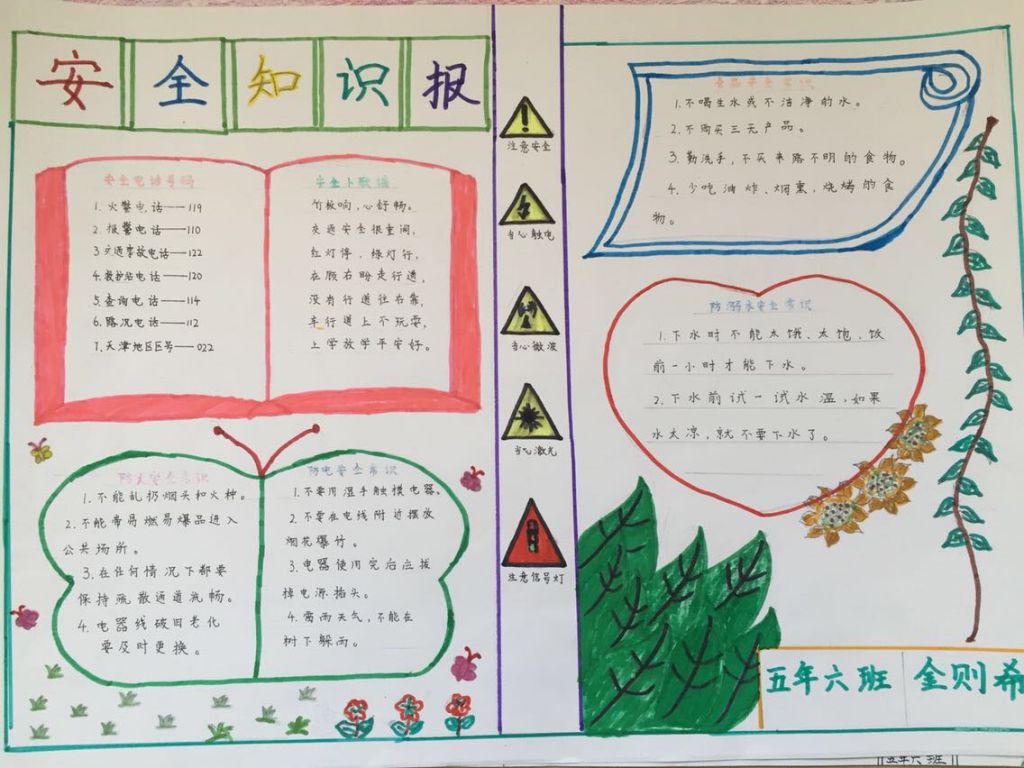 安全知识报
安全电话号码
1.火警电话——119
2.报警电话——110
3.交通事故电话——122
4.救护站电话——120
5.查询电话——114
6.路况电话——112
7.天津地区区号——022
安全小歌谣
竹板响,心舒畅。
交通安全很重间,
红灯停,绿灯行,
左顾右盼走行道,
没有行道往右靠,
车行道上不玩耍,
上学放学平安好。
防火安全常识
1.不能乱扔烟头和火种。
2.不能带易燃易爆品进入
公共场所。
3.在任何情况下都要
保持疏散通道流畅。
4.电器线破旧老化
要及时更换。
防电安全常识
1.不要用湿手触摸电器。
2.不要在电线附近摆放
烟花爆竹。
3.电器使用完后应拔
掉电源插头。
4.雷雨天气,不能在
树下躲雨。
注意安全
当心触电
当心微波
当心激光
注意信号灯
食品安全常识
1.不喝生水或不洁净的水。
2.不购买三无产品。
3.勤洗手,不买来路不明的食物。
4.少吃油炸、烟熏,烧烤的食
物。
防溺水安全常识
1.下水时不能太饿、太饱,饭
前一小时才能下水。
2.下水前试一试水温,如果
水太凉,就不要下水了。
五年六班 金则希
五年六班